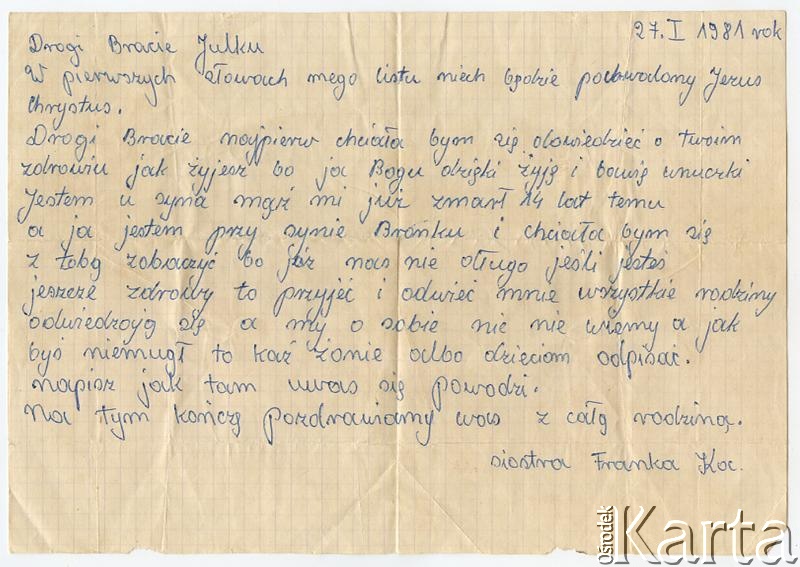 27. I 1981 rok
Drogi Bracie Julku
W pierwszych słowach mego listu niech będzie pochwalony Jezus
Chrystus.
Drogi Bracie najpierw chciała bym się dowiedzieć o twoim
zdrowiu jak żyjesz bo ja Bogu dzięki żyję i bawię wnuczki
Jestem u syna mąż mi już zmarł 14 lat temu
a ja jestem przy synie Brońku i chciała bym się
z tobą zobaczyć bo już nas nie długo jeśli jesteś
jeszcze zdrowy to przyjeć i odwieć mnie wszystkie rodziny
odwiedzają się a my o sobie nic nie wiemy a jak
byś niemugł to każ żonie albo dzieciom odpisać.
napisz jak tam uwas się powodzi.
Na tym kończę Pozdrawiamy was z całą rodziną.
siostra Franka Koc.
ośrodek
Karta